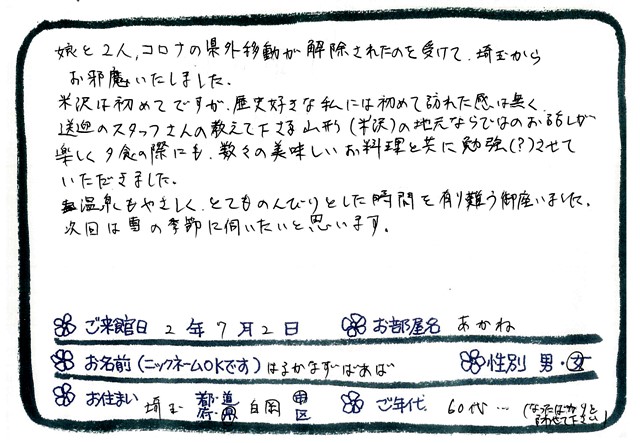 娘と2人、コロナの県外移動が解除されたのを受けて、埼玉から
お邪魔いたしました。
米沢は初めてですが、歴史好きな私には初めて訪れた感は無く、
送迎のスタッフさんの教えて下さる山形(米沢)の地元ならではのお話しが
楽しく夕食の際にも、数々の美味しいお料理と共に勉強(?)させて
いただきました。
温泉もやさしく、とてものんびりとした時間を有り難う御座いました。
次回は雪の季節に伺いたいと思います。
ご来館日 2年7月2日 お部屋名 あかね
お名前(ニックネームOKです) はるかなずばあば 性別 男・女
お住まい 埼玉 都道府県 白岡 市区 ご年代 60代… (なったばかりと
させて下さい)